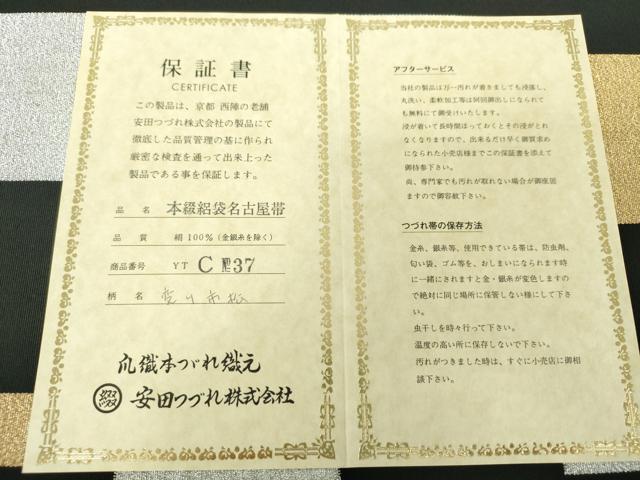 保証書
CERTIFICATE
この製品は、京都 西陣の老舗
安田つづれ株式会社の製品にて
徹底した品質管理の基に作られ
厳密な検査を通って出来上った
製品である事を保証します。
品名 本綴絽袋名古屋帯
品質 絹100%(金銀糸を除く)
商品番号 YT C 37
柄名
爪織本つづれ織元
安田つづれ株式会社
アフターサービス
当社の製品は万一汚れが着きましても浸落し、
丸洗い、柔軟加工等は何回御出しになられて
も無料にて御受けいたします。
浸が着いて長時間ほっておくとその浸がとれ
なくなりますので、出来るだけ早く御買求め
になられた小売店様までこの保証書を添えて
御持参下さい。
尚、専門家でも汚れが取れない場合が御座居
ますので御容赦下さい。
つづれ帯の保存方法
金糸、銀糸等、使用できている帯は、防虫剤、
匂い袋、ゴム等を、おしまいになられます時
に一緒にされますと金・銀糸が変色しますの
で絶対に同じ場所に保管しない様にして下さ
い。
虫干しを時々行って下さい。
温度の高い所に保存しないで下さい。
汚れがつきました時は、すぐに小売店に御相
談下さい。